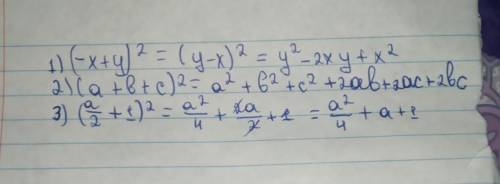 1) (-x+y)² = (y-x)² = y² - 2xy + x²
2) (a+b+c)² = a² + b² + c² + 2ab + 2ac + 2bc
3) (a/2 + 1)² = a²/4 + 2a/2 + 1 = a²/4 + a + 1